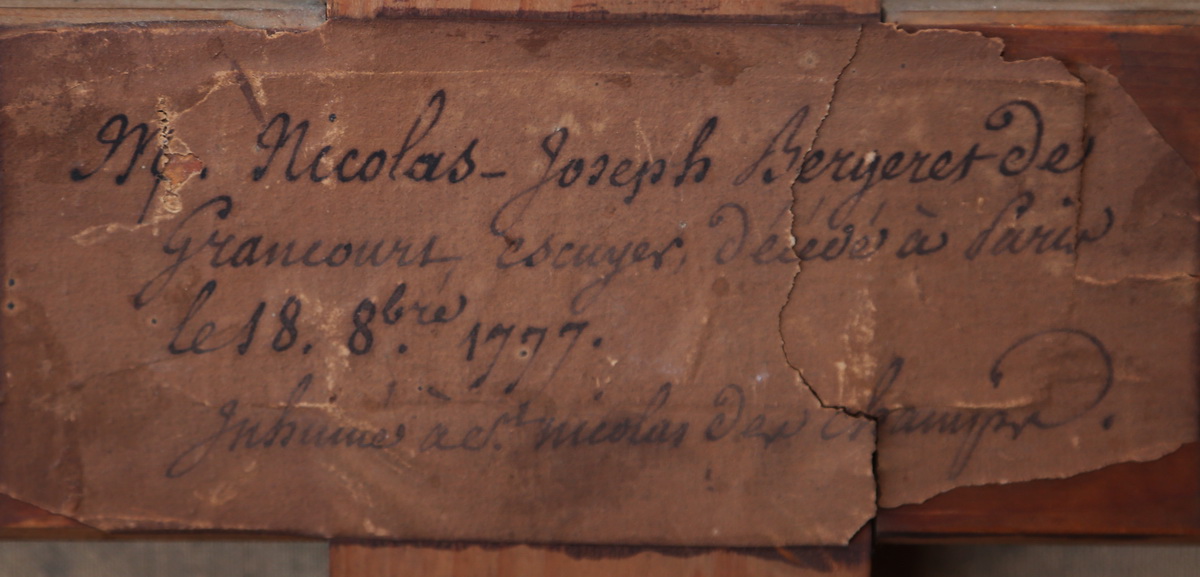 Mr. Nicolas-Joseph Bergeret de
Grancourt, escuyer, décédé à Paris
le 18. 8.bre 1777.
Inhumé à St. nicolas des champs.